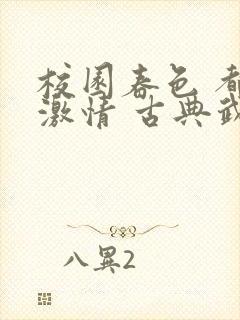 校园春色 都
激情 古典武
八異2